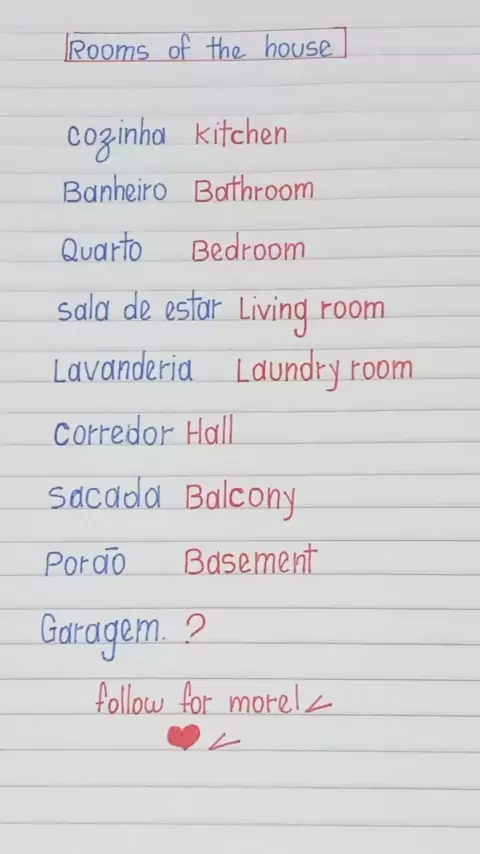 Rooms of the house
cozinha kitchen
Banheiro Bathroom
Quarto Bedroom
sala de estar Living room
Lavanderia Laundry room
corredor Hall
sacada Balcony
Porão Basement
Garagem. ?
follow for more!